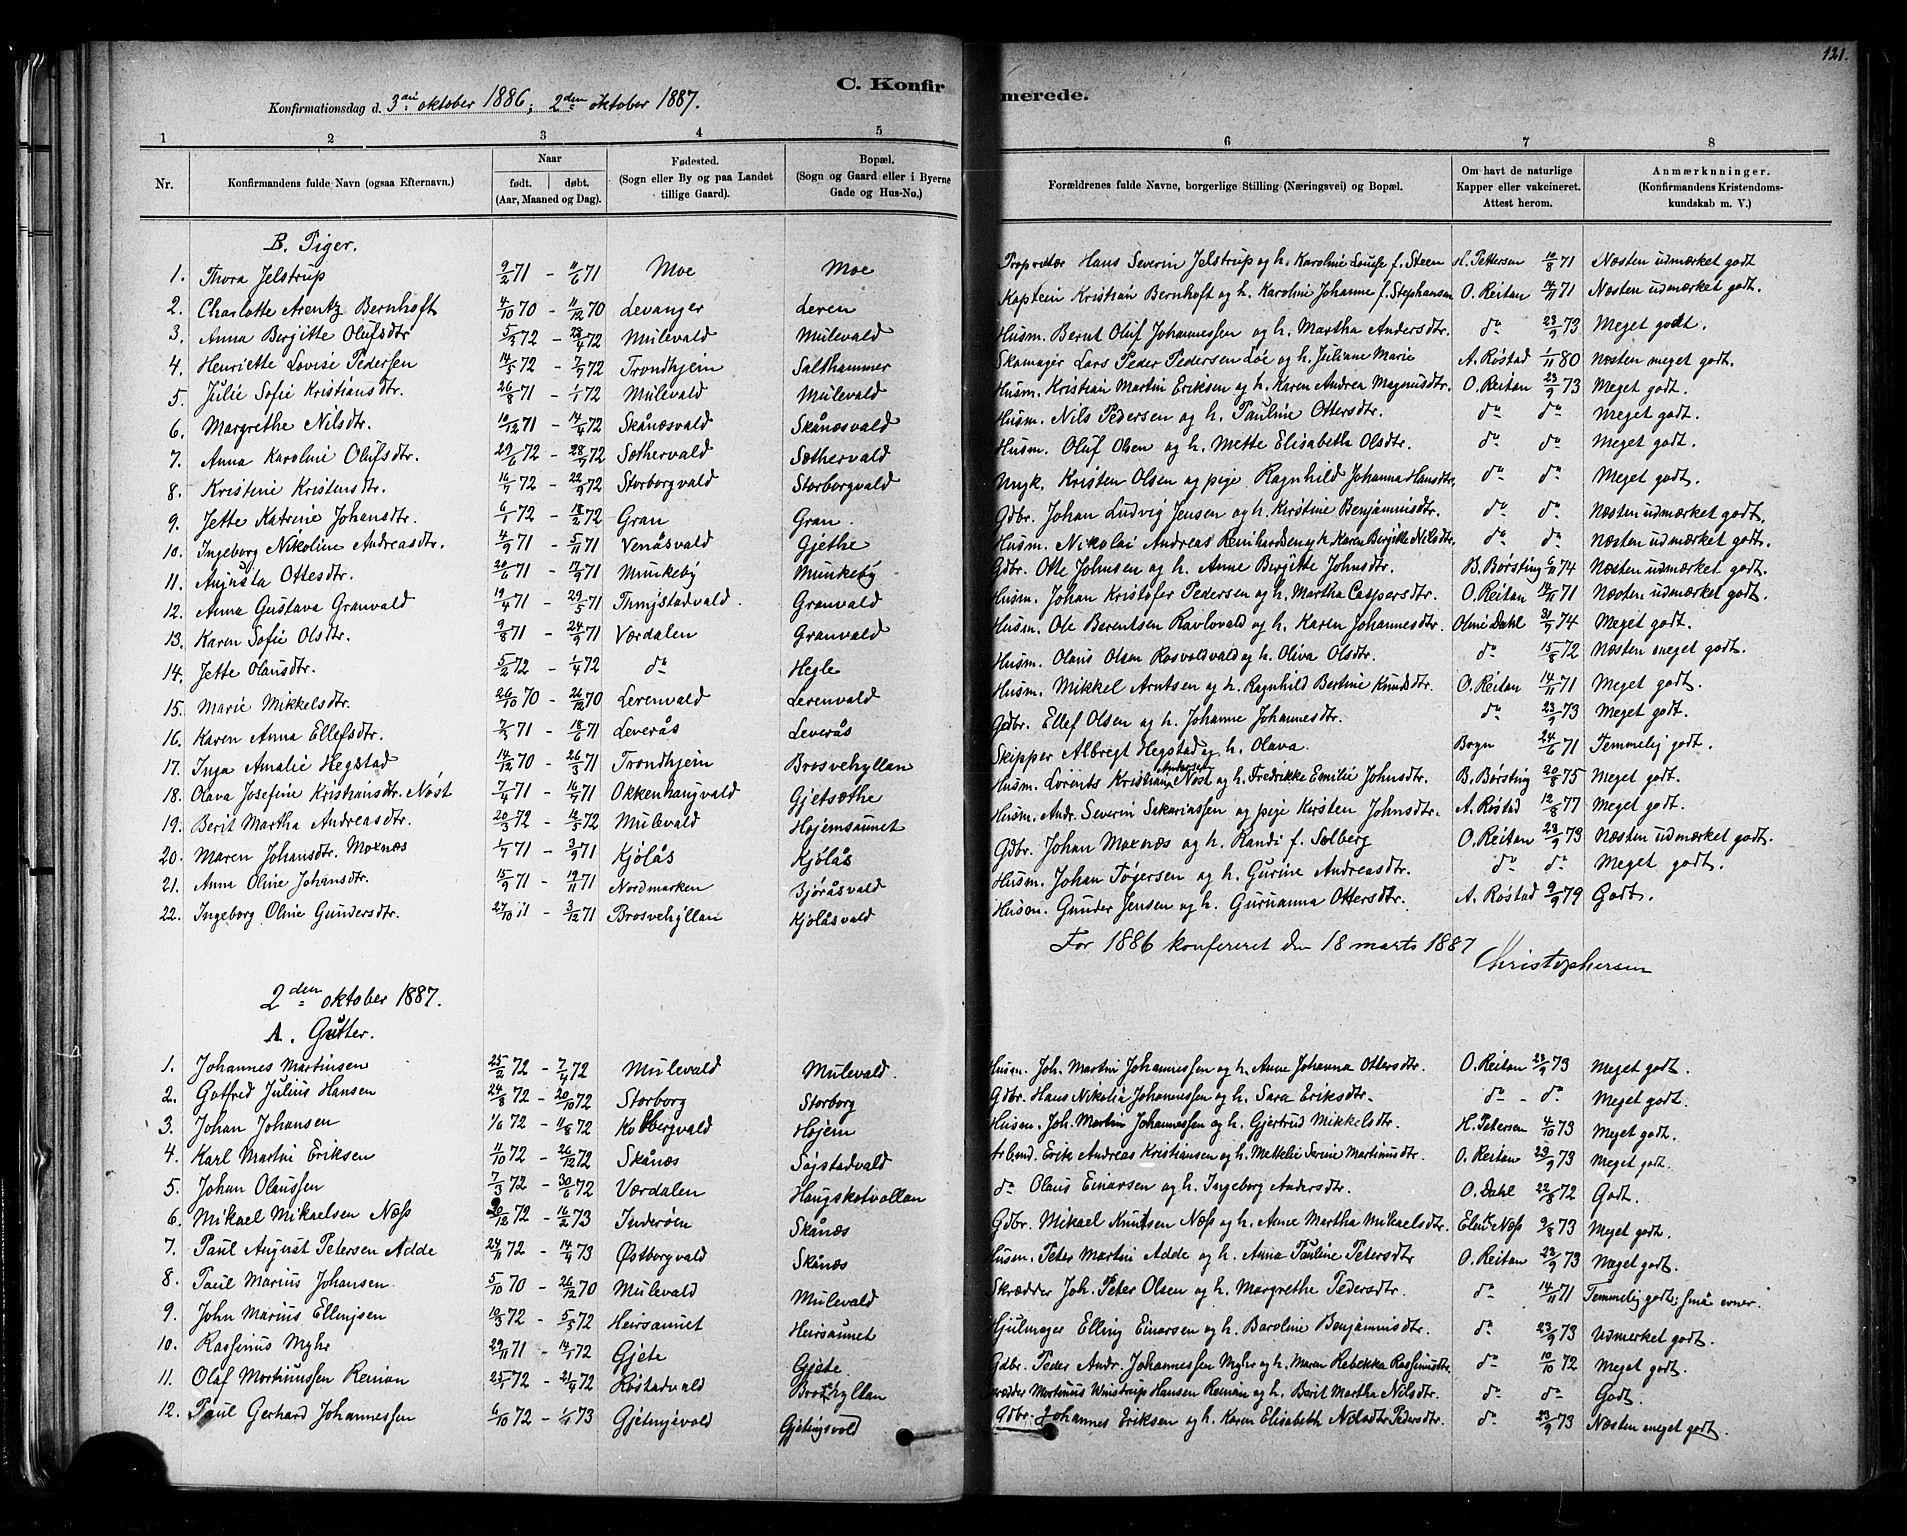 121.
C. Konfirmerede.
Konfirmationsdag d. 3die oktober 1886; 2den oktober 1887.
1 2 3 4 5 6 7 8
Nr. Konfirmandens fulde Navn (ogsaa Efternavn.) Naar født. døbt. (Aar, Maaned og Dag). Fødested. (Sogn eller By og paa Landet tillige Gaard). Bopæl. (Sogn og Gaard eller i Byerne Gade og Hus-No.) Forældrenes fulde Navne, borgerlige Stilling (Næringsvei) og Bopæl. Om havt de naturlige Kapper eller vakcineret. Attest herom. Anmærknninger. (Konfirmandens Kristendomskundskab m. V.)
B. Piger.
1. Thora Jelstrup 9/2 71 - 11/6 71 Moe Moe Proprietær Hans Severin Jelstrup og h. Karoline Louise f. Steen H. Pettersen 10/8 71 Næsten udmærket godt
2. Charlotte Arentz Bernhoft 4/10 70 - 11/12 70 Levanger Leren Kaptein Kristian Bernhoft og h. Karoline Johanne f. Stephansen O. Reitan 14/11 71 Næsten udmærket godt.
3. Anna Bergitte Olufsdtr 5/3 72 - 28/4 72 Mulevald Mulevald Husm. Bernt Oluf Johannessen og h. Martha Andersdtr. do 23/9 73 Meget godt.
4. Henriette Lovise Pedersen 14/5 72 - 7/7 72 Trondhjem Salthammer Skomager Lars Peder Pedersen Löe og h. Juliane Marie A. Røstad 1/11 80 Næsten meget godt.
5. Julie Sofie Kristiansdtr. 26/8 71 - 1/1 72 Mulevald Mulevald Husm. Kristian Martin Eriksen og h. Karen Andrea Magnusdtr. O. Reitan 23/9 73 Meget godt.
6. Margrethe Nilsdtr. 10/12 71 - 14/4 72 Skånæsvald Skånæsvald Husm. Nils Pedersen og h. Pauline Ottersdtr. do do Meget godt.
7. Anna Karoline Olufsdtr. 29/6 72 - 28/7 72 Sæthervald Sæthervald Husm. Oluf Olsen og h. Mette Elisabeth Olsdtr. do do Meget godt.
8. Kristine Kristensdtr. 16/7 72 - 22/9 72 Storborgvald Storborgvald Ungk. Kristen Olsen og pige Ragnhild Johanna Hansdtr. do do Meget godt.
9. Jette Katrine Johansdtr. 6/1 72 - 18/2 72 Gran Gran. Gdbr. Johan Ludvig Jensen og h. Kirstine Benjaminsdtr. do do Næsten udmærket godt.
10. Ingeborg Nikoline Andreasdtr. 4/9 71 - 5/11 71 Venåsvald Gjethe Husm. Nikolai Andreas Reinhardsen og h. Karen Bergitte Nilsdtr. do do Næsten udmærket godt.
11. Augusta Ottesdtr. 20/6 71 - 17/9 71 Munkeby Munkeby Gdbr. Otte Johnsen og h. Anne Bergitte Johnsdtr. B. Børsting 6/11 74 Næsten udmærket godt.
12. Anna Gustava Granvald 19/4 71 - 29/5 71 Thingstadvald. Granvald Husm. Johan Kristofer Pedersen og h. Martha Caspersdtr. O. Reitan 14/11 71 Næsten udmærket godt.
13. Karen Sofie Olsdtr. 9/8 71 - 24/9 71 Værdalen Granvald Husm. Ole Berentsen Ravlovald og h. Karen Johannesdtr. Oline Dahl 31/7 74 Meget godt.
14. Jette Olausdtr. 5/2 72 - 1/4 72 do Hegle Husm. Olaus Olsen Rosvoldvald og h. Oliva Olsdtr. do 15/8 72 Næsten meget godt.
15. Marie Mikkelsdtr. 26/10 70 - 26/12 70 Lerenvald Lerenvald Husm. Mikkel Arntsen og h. Ragnhild Bertine Knudsdtr. O. Reitan 14/11 71 Meget godt.
16. Karen Anna Ellefsdtr. 7/5 71 - 18/6 71 Leverås Leverås Gdbr. Ellef Olsen og h. Johanne Johannesdtr. do 23/9 73 Meget godt.
17. Inga Amalie Hegstad 14/12 70 - 26/3 71 Trondhjem Brosvehyllan Skipper Albregt Hegstad og h. Olava. Bogn 24/6 71 Temmelig godt.
18. Olava Josefine Kristiansdtr. Nöst 7/4 71 - 16/7 71 Okkenhaugvald Gjetsæthe Husm. Lorents Kristian Andersen Nöst og h. Fredrikke Emilie Johnsdtr. B. Børsting 20/8 75 Meget godt.
19. Berit Martha Andreasdtr. 20/3 72 - 12/5 72 Mulevald Højemsaunet Husm. Andr. Severin Sakariassen og pige Kirsten Johnsdtr. A. Røstad 12/8 77 Meget godt.
20. Maren Johansdtr. Moxnæs 1/7 71 - 3/9 71 Kjölås Kjölås Gdbr. Johan Moxnæs og h. Randi f. Solberg O. Reitan 23/9 73 Næsten udmærket godt.
21. Anna Oline Johansdtr. 15/9 71 - 19/11 71 Nordmarken Björåsvald Husm. Johan Tøgersen og h. Gurine Andreasdtr. do do Meget godt.
22. Ingeborg Oline Gundersdtr. 27/10 71 - 3/12 71 Brosvehyllan Kjölåsvald Husm. Gunder Jensen og h. Guruanna Ottersdtr. A. Røstad 9/9 79 Godt.
For 1886 konfereret den 18 marts 1887
Christophersen
2den oktober 1887.
A. Gutter.
1. Johannes Martinsen 25/2 72 - 7/4 72 Mulevald Mulevald. Husm. Joh. Martin Johannessen og h. Anne Johanna Ottersdtr. O. Reitan 23/9 73 Meget godt.
2. Gotfred Julius Hansen 24/8 72 - 20/10 72 Storborg Storborg Gdbr. Hans Nikolai Johannessen og h. Sara Eriksdtr. do - do Meget godt.
3. Johan Johansen 1/6 72 - 11/8 72 Kolbergvald Højem Husm. Joh. Martin Johannessen og h. Gjertrud Mikkelsdtr. H. Petersen 4/10 73 Meget godt.
4. Karl Martin Eriksen 11/10 72 - 26/12 72 Skånæs Søjstadvald Arbmd. Erik Andreas Kristiansen og h. Mettelie Serine Martinusdtr. O. Reitan 23/9 73 Meget godt.
5. Johan Olaussen 7/3 72 - 30/6 72 Værdalen Haugskotvollan do Olaus Einarsen og h. Ingeborg Andersdtr. O. Dahl 22/8 72 Godt.
6. Mikael Mikaelsen Næss 30/12 72 - 16/2 73 Inderøen Skånæs Gdbr. Mikael Knutsen Næss og h. Anne Martha Mikaelsdtr. Elen Næss 9/8 73 Meget godt.
7. Paul August Petersen Adde 24/11 72 - 14/4 73 Østborgvald Skånæs Husm. Peter Martin Adde og h. Anna Pauline Petersdtr O. Reitan 23/9 73 Meget godt.
8. Paul Marius Johansen 5/10 70 - 26/12 70 Mulevald Mulevald Skrædder Joh. Peter Olsen og h. Margrethe Pedersdtr. do 14/11 71 Temmelig godt; små evner.
9. John Marius Ellingsen 19/3 72 - 5/5 72 Heirsaunet Heirsaunet Hjulmager Elling Einarsen og h. Baroline Benjaminsdtr. do 23/9 73 Udmerket godt.
10. Rassinus Myhr 29/11 71 - 14/1 72 Gjete Gjete Gdbr. Peder Andr. Johannessen Myhr og h. Maren Rebekka Rassinusdtr do 10/10 72 Meget godt.
11. Olaf Martinussen Reinan 25/1 72 - 21/4 72 Røstadvald Brosvehyllan Martinus Winstrup Hansen Reinan og h. Berit Martha Nilsdtr. do do Godt.
12. Paul Gerhard Johannessen 6/10 72 - 1/1 73 Gjetingsvold Gjetingsvold Gdbr. Johannes Eriksen og h. Karen Elisabeth Nilsdtr Pedersdtr. do 23/9 73 Næsten meget godt.